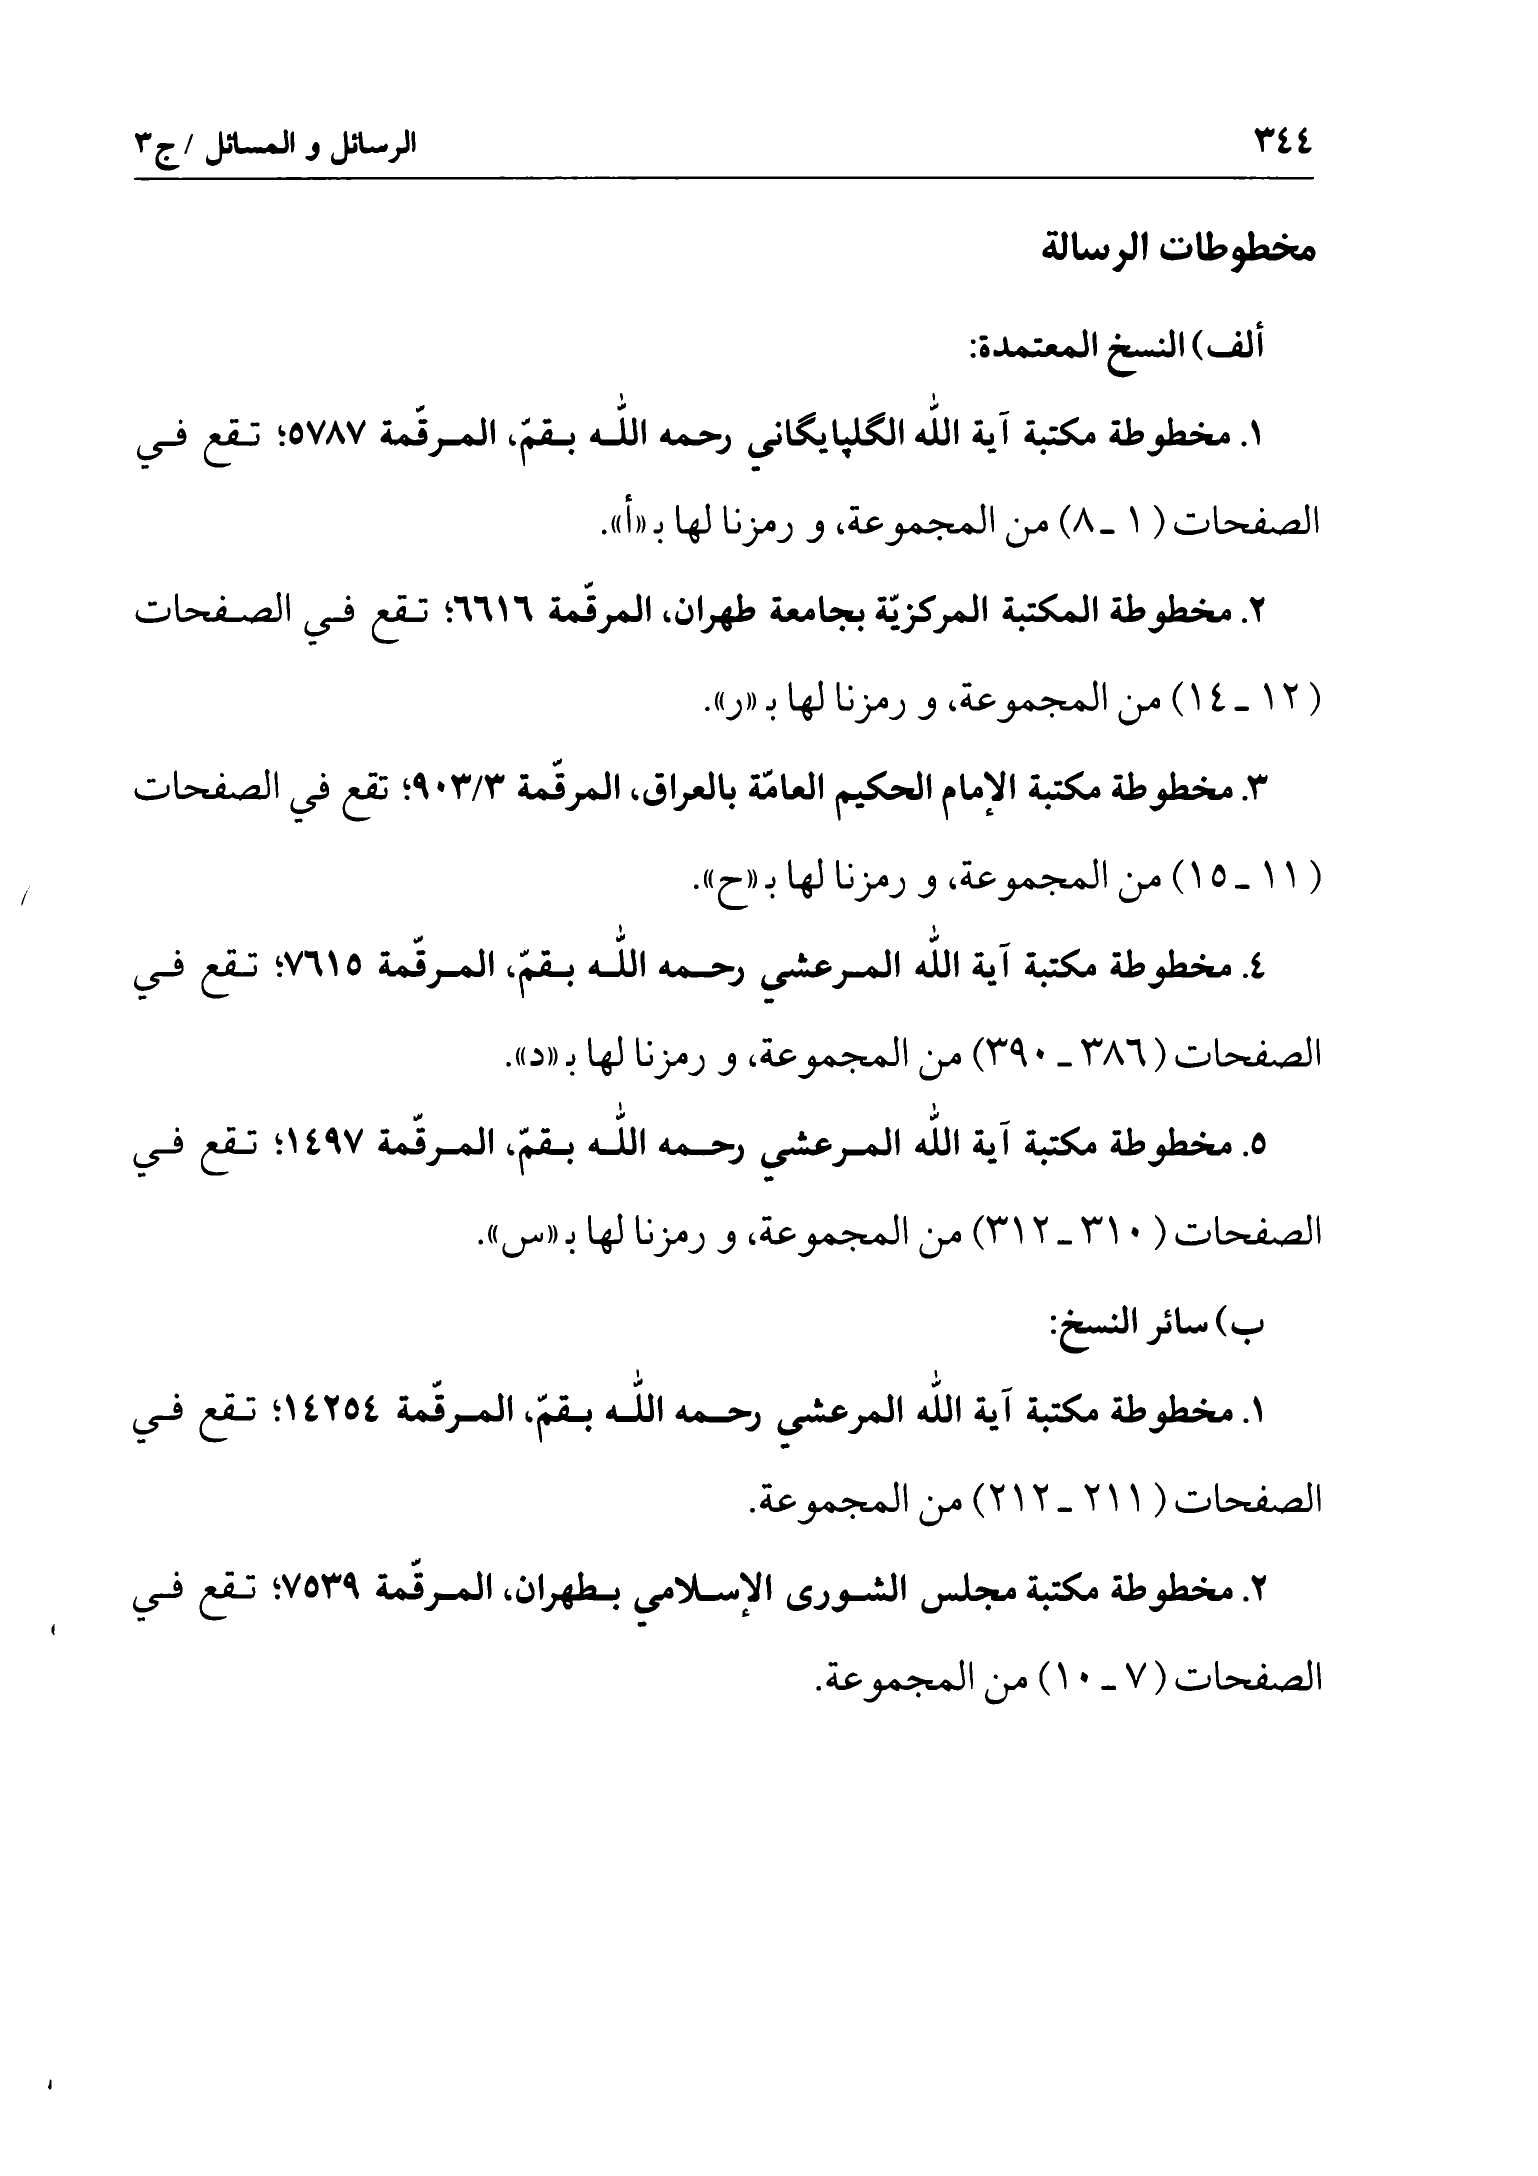 ٣٤٤ الرسائل و المسائل / ج٣
مخطوطات الرسالة
ألف) النسخ المعتمدة:
١. مخطوطة مكتبة آية اللّٰه الگلپايگاني رحمه اللّٰه بقمّ، المرقّمة ٥٧٨٧؛ تقع في
الصفحات (١ ـ ٨) من المجموعة، و رمزنا لها بـ «أ».
٢. مخطوطة المكتبة المركزيّة بجامعة طهران، المرقّمة ٦٦١٦؛ تقع في الصفحات
(١٢ ـ ١٤) من المجموعة، و رمزنا لها بـ «ر».
٣. مخطوطة مكتبة الإمام الحكيم العامّة بالعراق، المرقّمة ٩٠٣/٣؛ تقع في الصفحات
(١١ ـ ١٥) من المجموعة، و رمزنا لها بـ «ح».
٤. مخطوطة مكتبة آية اللّٰه المرعشي رحمه اللّٰه بقمّ، المرقّمة ٧٦١٥؛ تقع في
الصفحات (٣٨٦ ـ ٣٩٠) من المجموعة، و رمزنا لها بـ «د».
٥. مخطوطة مكتبة آية اللّٰه المرعشي رحمه اللّٰه بقمّ، المرقّمة ١٤٩٧؛ تقع في
الصفحات (٣١٠ ـ ٣١٢) من المجموعة، و رمزنا لها بـ «س».
ب) سائر النسخ:
١. مخطوطة مكتبة آية اللّٰه المرعشي رحمه اللّٰه بقمّ، المرقّمة ١٤٢٥٤؛ تقع في
الصفحات (٢١١ ـ ٢١٢) من المجموعة.
٢. مخطوطة مكتبة مجلس الشورى الإسلامي بطهران، المرقّمة ٧٥٣٩؛ تقع في
الصفحات (٧ ـ ١٠) من المجموعة.